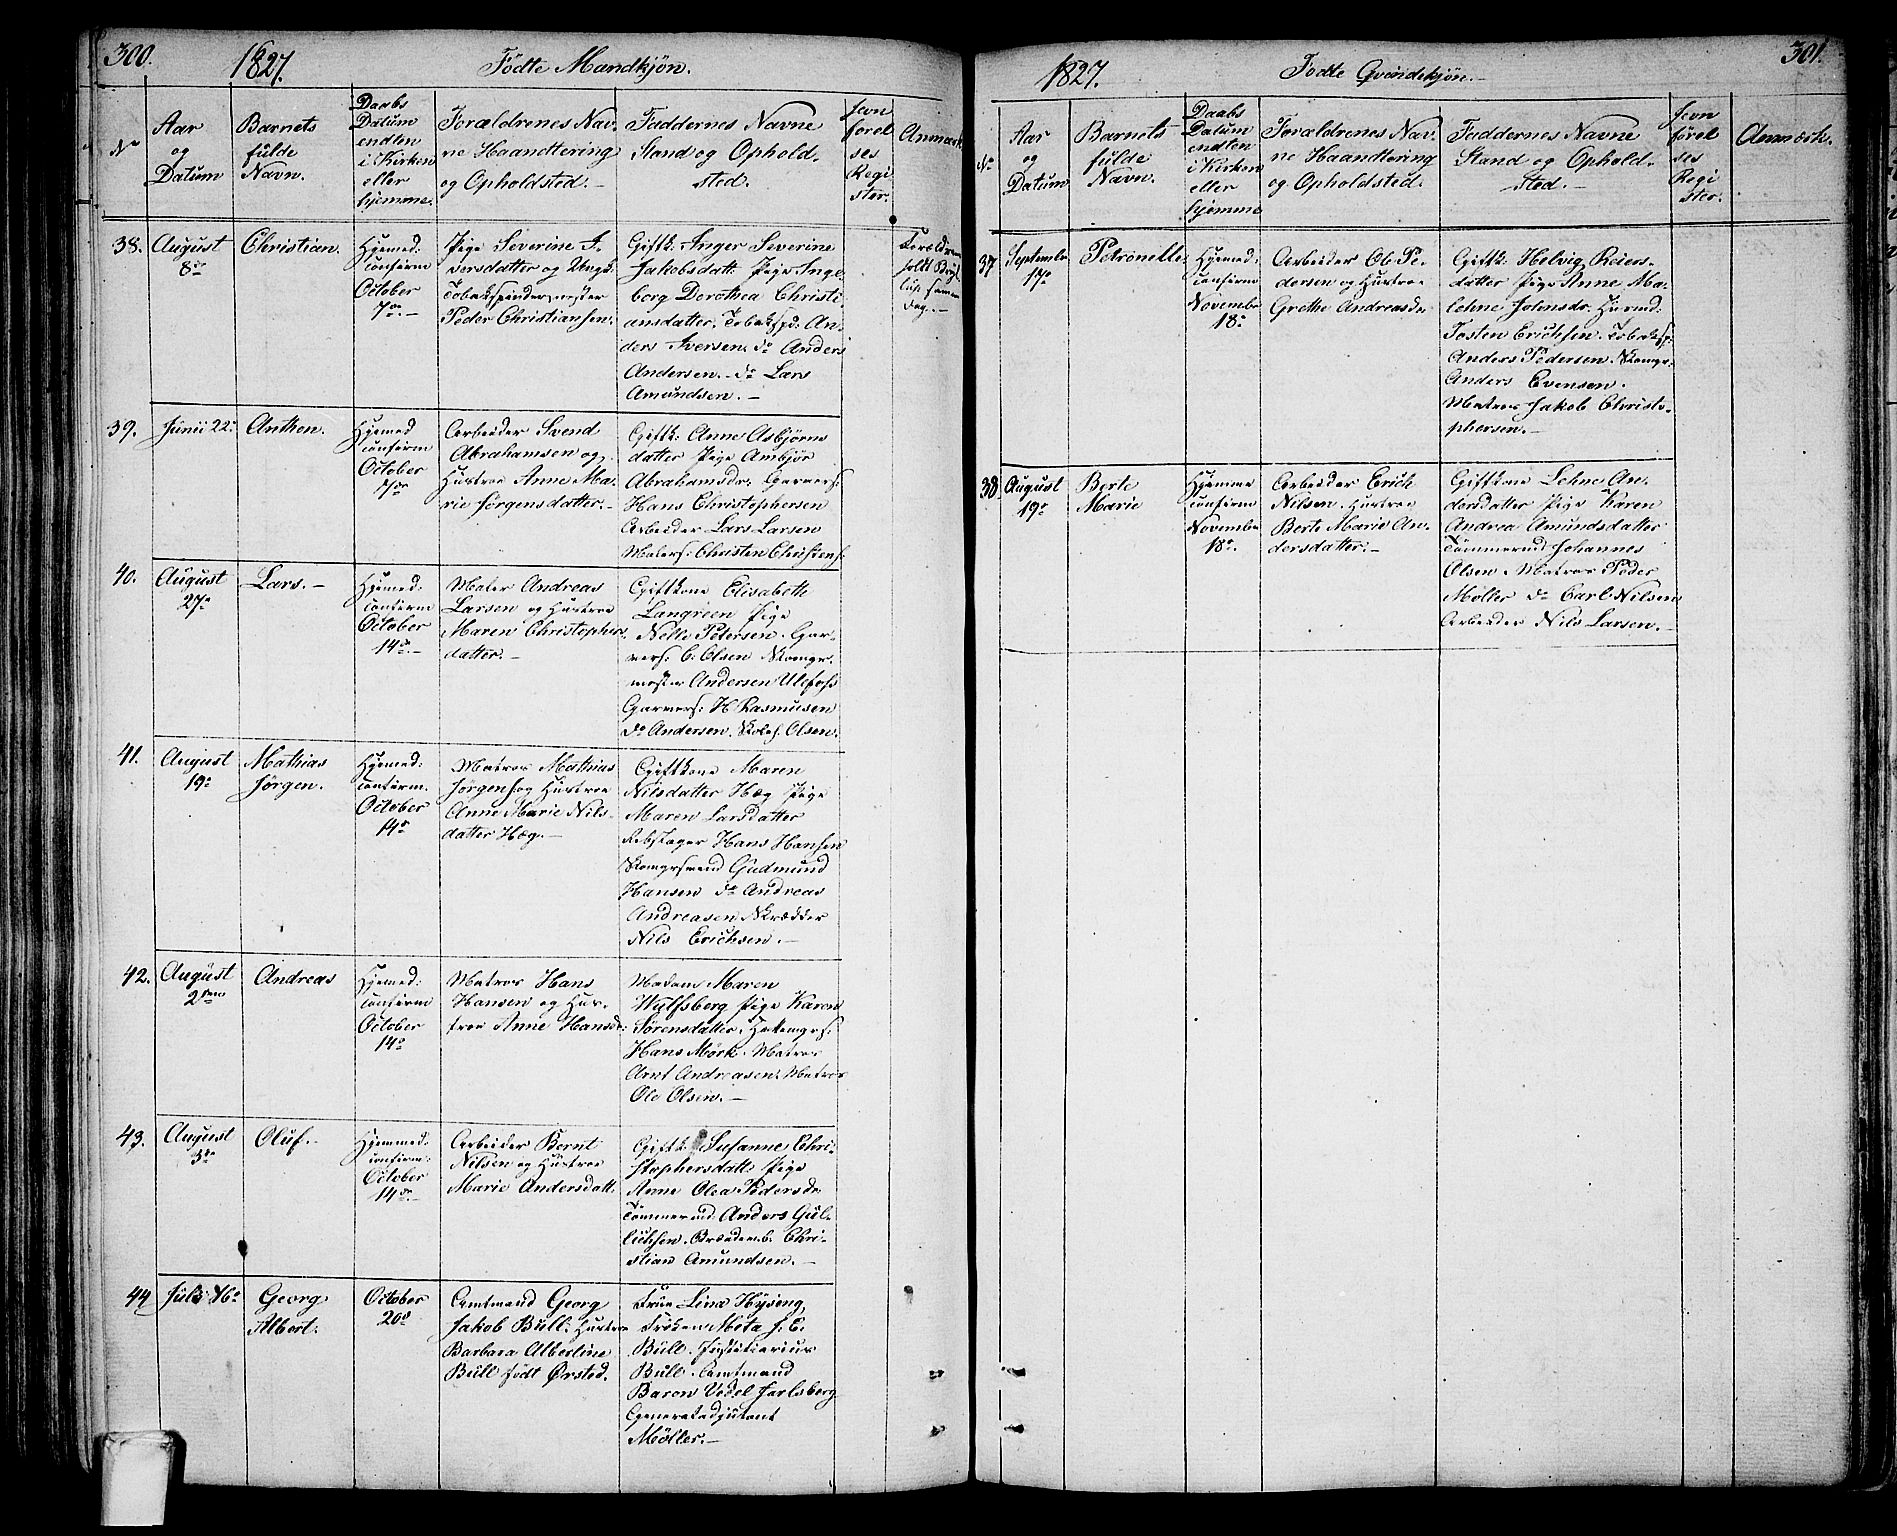 300.
1827.
Födte Mandkjön.
No
Aar
og
Datum
Barnets
fulde
Navn.
Daabs
Datum
endten
i Kirken
eller
hjemme.
Forældrenes Nav-
ne Haandtering
og Opholdsted.-
Faddernes Navne
Stand og Ophold-
sted.
Jevn
förel
ses
Regi
ster.
Anmærk.
38.
August
8de
Christian.
Hjemed:
confirm
October
7de.-
Pige Severine I-
versdatter og Ungk.
Tobakspindermester
Peder Christiansen.
Giftk: Inger Severine
Jakobsdatt: Pige Inge-
borg Dorothea Christi
ansdatter. Tobakspd. An-
ders Iversen. do Anders
Andersen.- do Lars
Amundsen.-
39.
Junii 22.
Anthon.
Hjemed
confirm
October
7de
Arbeider Svend
Abrahamsen og
Hustroe Anne Ma-
rie Jörgensdatter.-
Giftk: Anne Asbjörns
datter Pige Ambjör
Abrahamsdr. Garvers:
Hans Christophersen
Arbeider Lars Larsen
Malers: Christen Christens:
40.
August
27de
Lars.-
Hjemed:
confirm
October
14de.-
Maler Andreas
Larsen og Hustroe
Maren Christophers-
datter.-
Giftkone Elisabeth
Langreen Pige
Nelle Petersen. Gar-
vers: C: Olsen Skomgr.
mester Andersen Ulefoss
Garvers: H Rasmusen
do Andersen. Olsen.
41.
August
19de
Mathias
Jörgen.
Hjemed:
confirm.
October
14de
Matros Mathias
Jörgens og Hustroe
Anne Marie Nils-
datter Hæg.-
Giftkone Maren
Nilsdatter Hæg Pige
Maren Larsdatter
Rebslager Hans Hansen
Skomgrsvend Gudmund
Hansen do Andreas
Andreasen Skrædder
Nils Erichsen.-
42.
August
2den
Andreas
Hjemed:
confirm
October
14de
Matros Hans
Hansen og Hus-
troe Anne Hansdr:
Madam Maren
Wulfsberg Pige Karen
Sörensdatter.
Hans Mörk. Matros
Arnt Andreasen. Matros
Ole Olsen.-
43.
August
3de
Oluf.-
Hjemmed:
confirm:
October
14de.-
Arbeider Bernt
Nilsen og Hustroe
Marie Andersdatt.
Giftk: Susanne Chri-
stophersdatt: Pige
Anne Olea Pedersdr
Tömmermd: Anders Gul-
lichsen. Brændevb. Chri-
stian Amundsen.-
44
Juli 16de
Georg
Albert.
October
20de
Amtmand Georg
Jakob Bull. Hustroe
Barbara Albertine
Bull födt Örsted.
Frue Lina Hysing,
Fröken Meta J. C.
Bull. Justitiarius
Bull. Amtmand
Baron Vedel Jarlsberg
Generaladjutant
Möller.-
1827.
Födte Qvindekjön.-
301.
No
Aar
og
Datum
Barnets
fulde
Navn.
Daabs
Datum
endten
i Kirken
eller
hjemme
Forældrenes Nav-
ne Haandtering
og Opholdsted.
Faddernes Navne
Stand og Ophold-
sted.-
Jevn
förel
ses
Regi
ster.
Anmærk.
37
Septembr
17de
Petronelle
Hjemed:
confirm
Novembr
18de
Arbeider Ole Pe-
dersen og Hustroe
Grethe Andreasdr
Giftk. Helvig Reiers-
datter Pige Anne Ma-
lehne Johnsdr. Huusmd:
Tosten Erichsen. Tobaksp:
Anders Pedersen. Skomgr:
Anders Evensen.
Matros Jakob Christo-
phersen.-
38
August
19de
Berte
Marie
Hjemme
confirm
Novembr
18de.
Arbeider Erich
Nilsen. Hustroe
Berte Marie An-
dersdatter.-
Giftkone Lehne An-
dersdatter Pige Karen
Andrea Amundsdatter
Tömmermd Johannes
Olsen Matros Peder
Möller do Carl Nilsen
Arbeider Nils Larsen.-